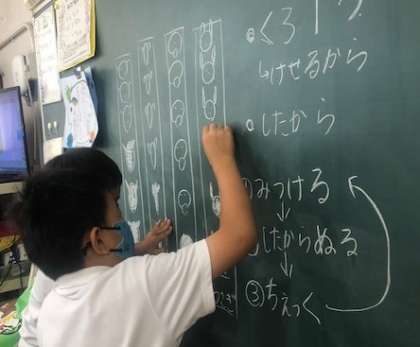 けせるから
したから
みつける
したからぬる
③ちぇっく